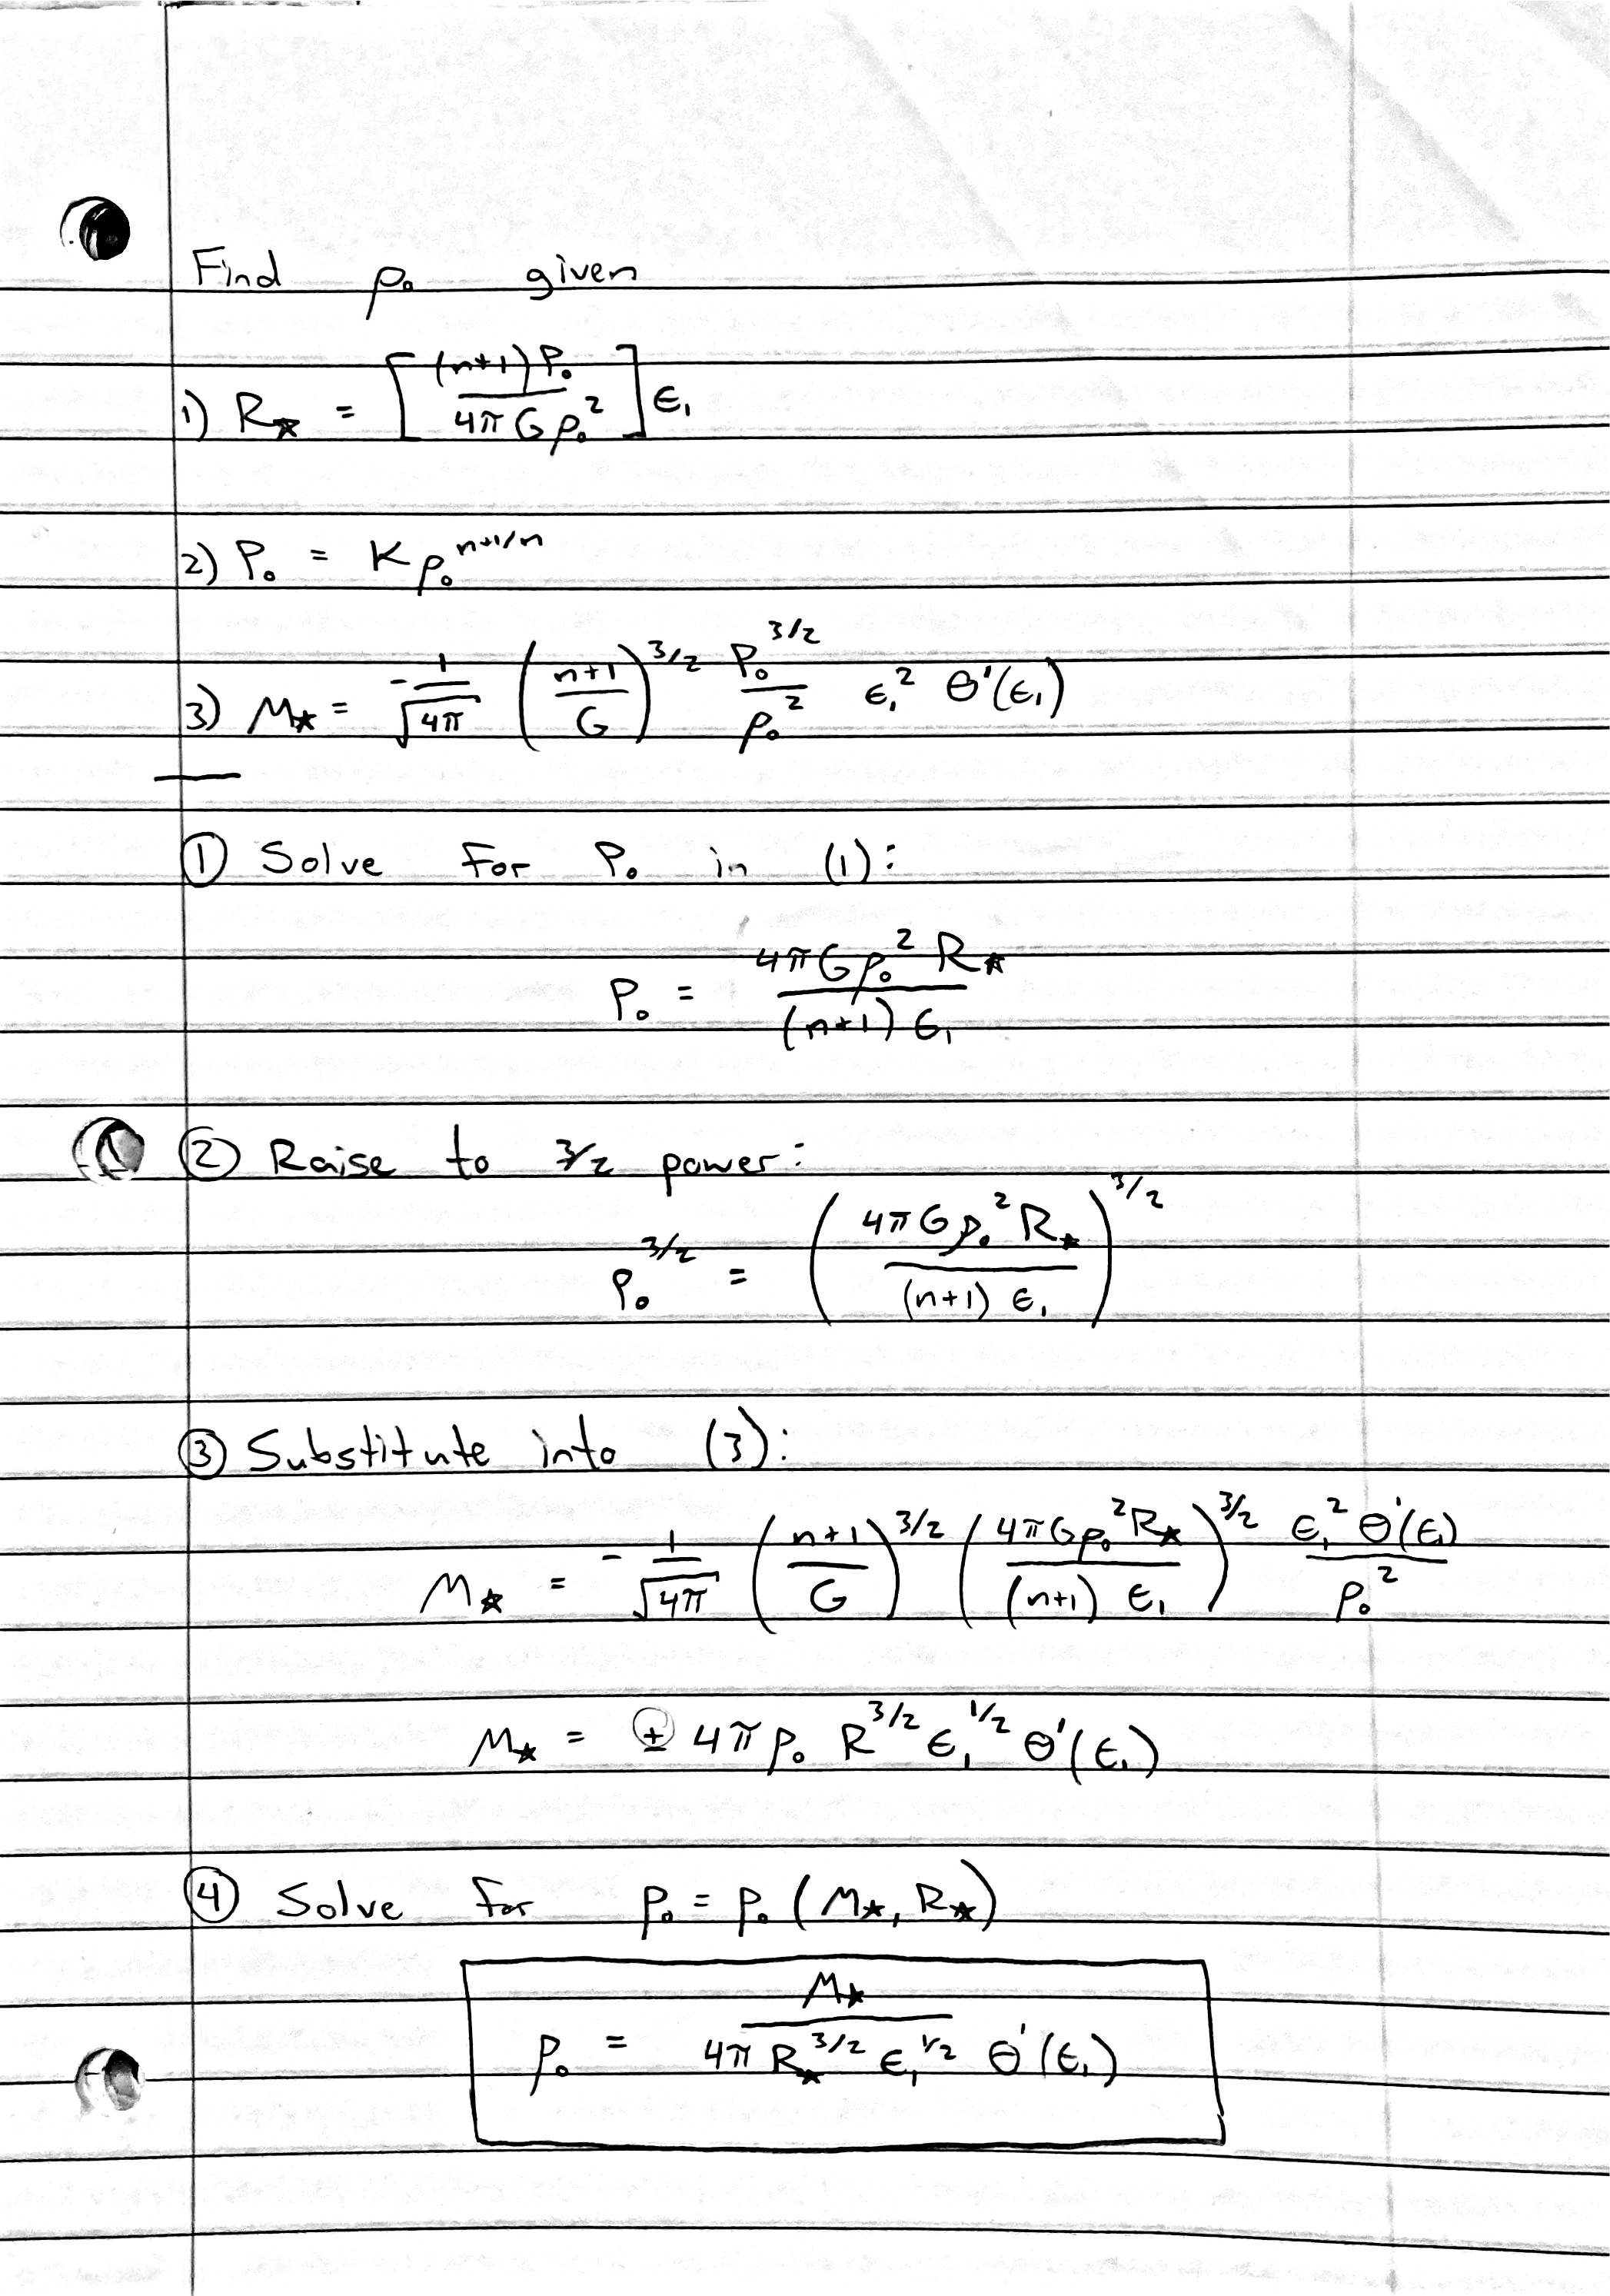 Find ρ₀ given
1) R★ = [(n+1) P₀ / 4π G ρ₀²] ϵ₁
2) P₀ = K ρ₀^(n+1/n)
3) M★ = -1/√(4π) ((n+1)/G)^(3/2) P₀^(3/2)/ρ₀² ϵ₁² Θ'(ϵ₁)
① Solve for P₀ in (1):
P₀ = 4πGρ₀² R★ / (n+1) ϵ₁
② Raise to 3/2 power:
P₀^(3/2) = (4πGρ₀² R★ / (n+1) ϵ₁)^(3/2)
③ Substitute into (3):
M★ = -1/√(4π) ((n+1)/G)^(3/2) (4πGρ₀² R★ / (n+1) ϵ₁)^(3/2) ϵ₁² Θ'(ϵ₁)/ρ₀²
M★ = ± 4π ρ₀ R^(3/2) ϵ₁^(1/2) Θ'(ϵ₁)
④ Solve for ρ₀ = ρ₀ (M★, R★)
ρ₀ = M★ / 4π R★^(3/2) ϵ₁^(1/2) Θ'(ϵ₁)